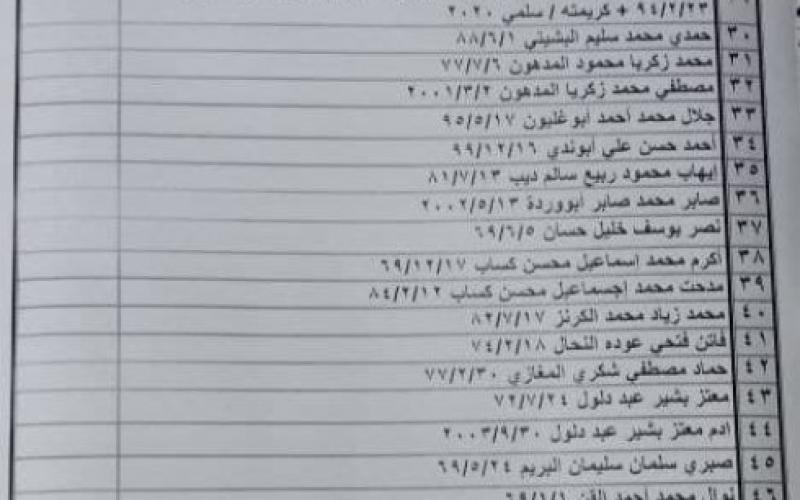 ٩٤/٢/٢٣ + كريمته / سلمي ٢٠٢٠
٣٠ حمدي محمد سليم البشيتي ٨٨/٦/١
٣١ محمد زكريا محمود المدهون ٧٧/٧/٦
٣٢ مصطفي محمد زكريا المدهون ٢٠٠١/٣/٢
٣٣ جلال محمد أحمد ابوغليون ٩٥/٥/١٧
٣٤ أحمد حسن علي ابوندي ٩٩/١٢/١٦
٣٥ ايهاب محمود ربيع سالم ديب ٨١/٧/١٣
٣٦ صابر محمد صابر ابووردة ٢٠٠٢/٥/١٣
٣٧ نصر يوسف خليل حسان ٦٩/٦/٥
٣٨ أكرم محمد اسماعيل محسن كساب ٦٩/١٢/١٧
٣٩ مدحت محمد اجسماعيل محسن كساب ٨٤/٢/١٢
٤٠ محمد زياد محمد الكرنز ٨٢/٧/١٧
٤١ فاتن فتحي عوده النحال ٧٤/٢/١٨
٤٢ حماد مصطفي شكري المغازي ٧٧/٢/٣٠
٤٣ معتز بشير عبد دلول ٧٢/٧/٢٤
٤٤ ادم معتز بشير عبد دلول ٢٠٠٣/٩/٣٠
٤٥ صبري سلمان سليمان البريم ٦٩/٥/٢٤
٤٦ محمد أحمد ٦٩/١/١